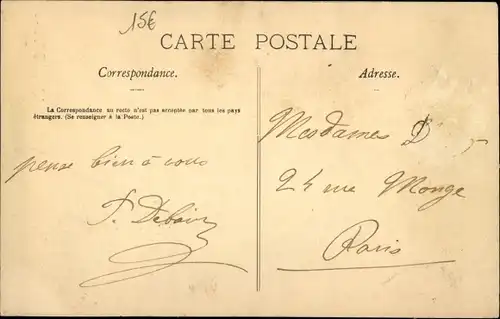 15€
CARTE POSTALE
Correspondance.
Adresse.
La Correspondance au recto n'est pas acceptée par tous les pays
étrangers. (Se renseigner à la Poste.)
pense bien à vous
Mesdames D
24 rue Monge
Paris